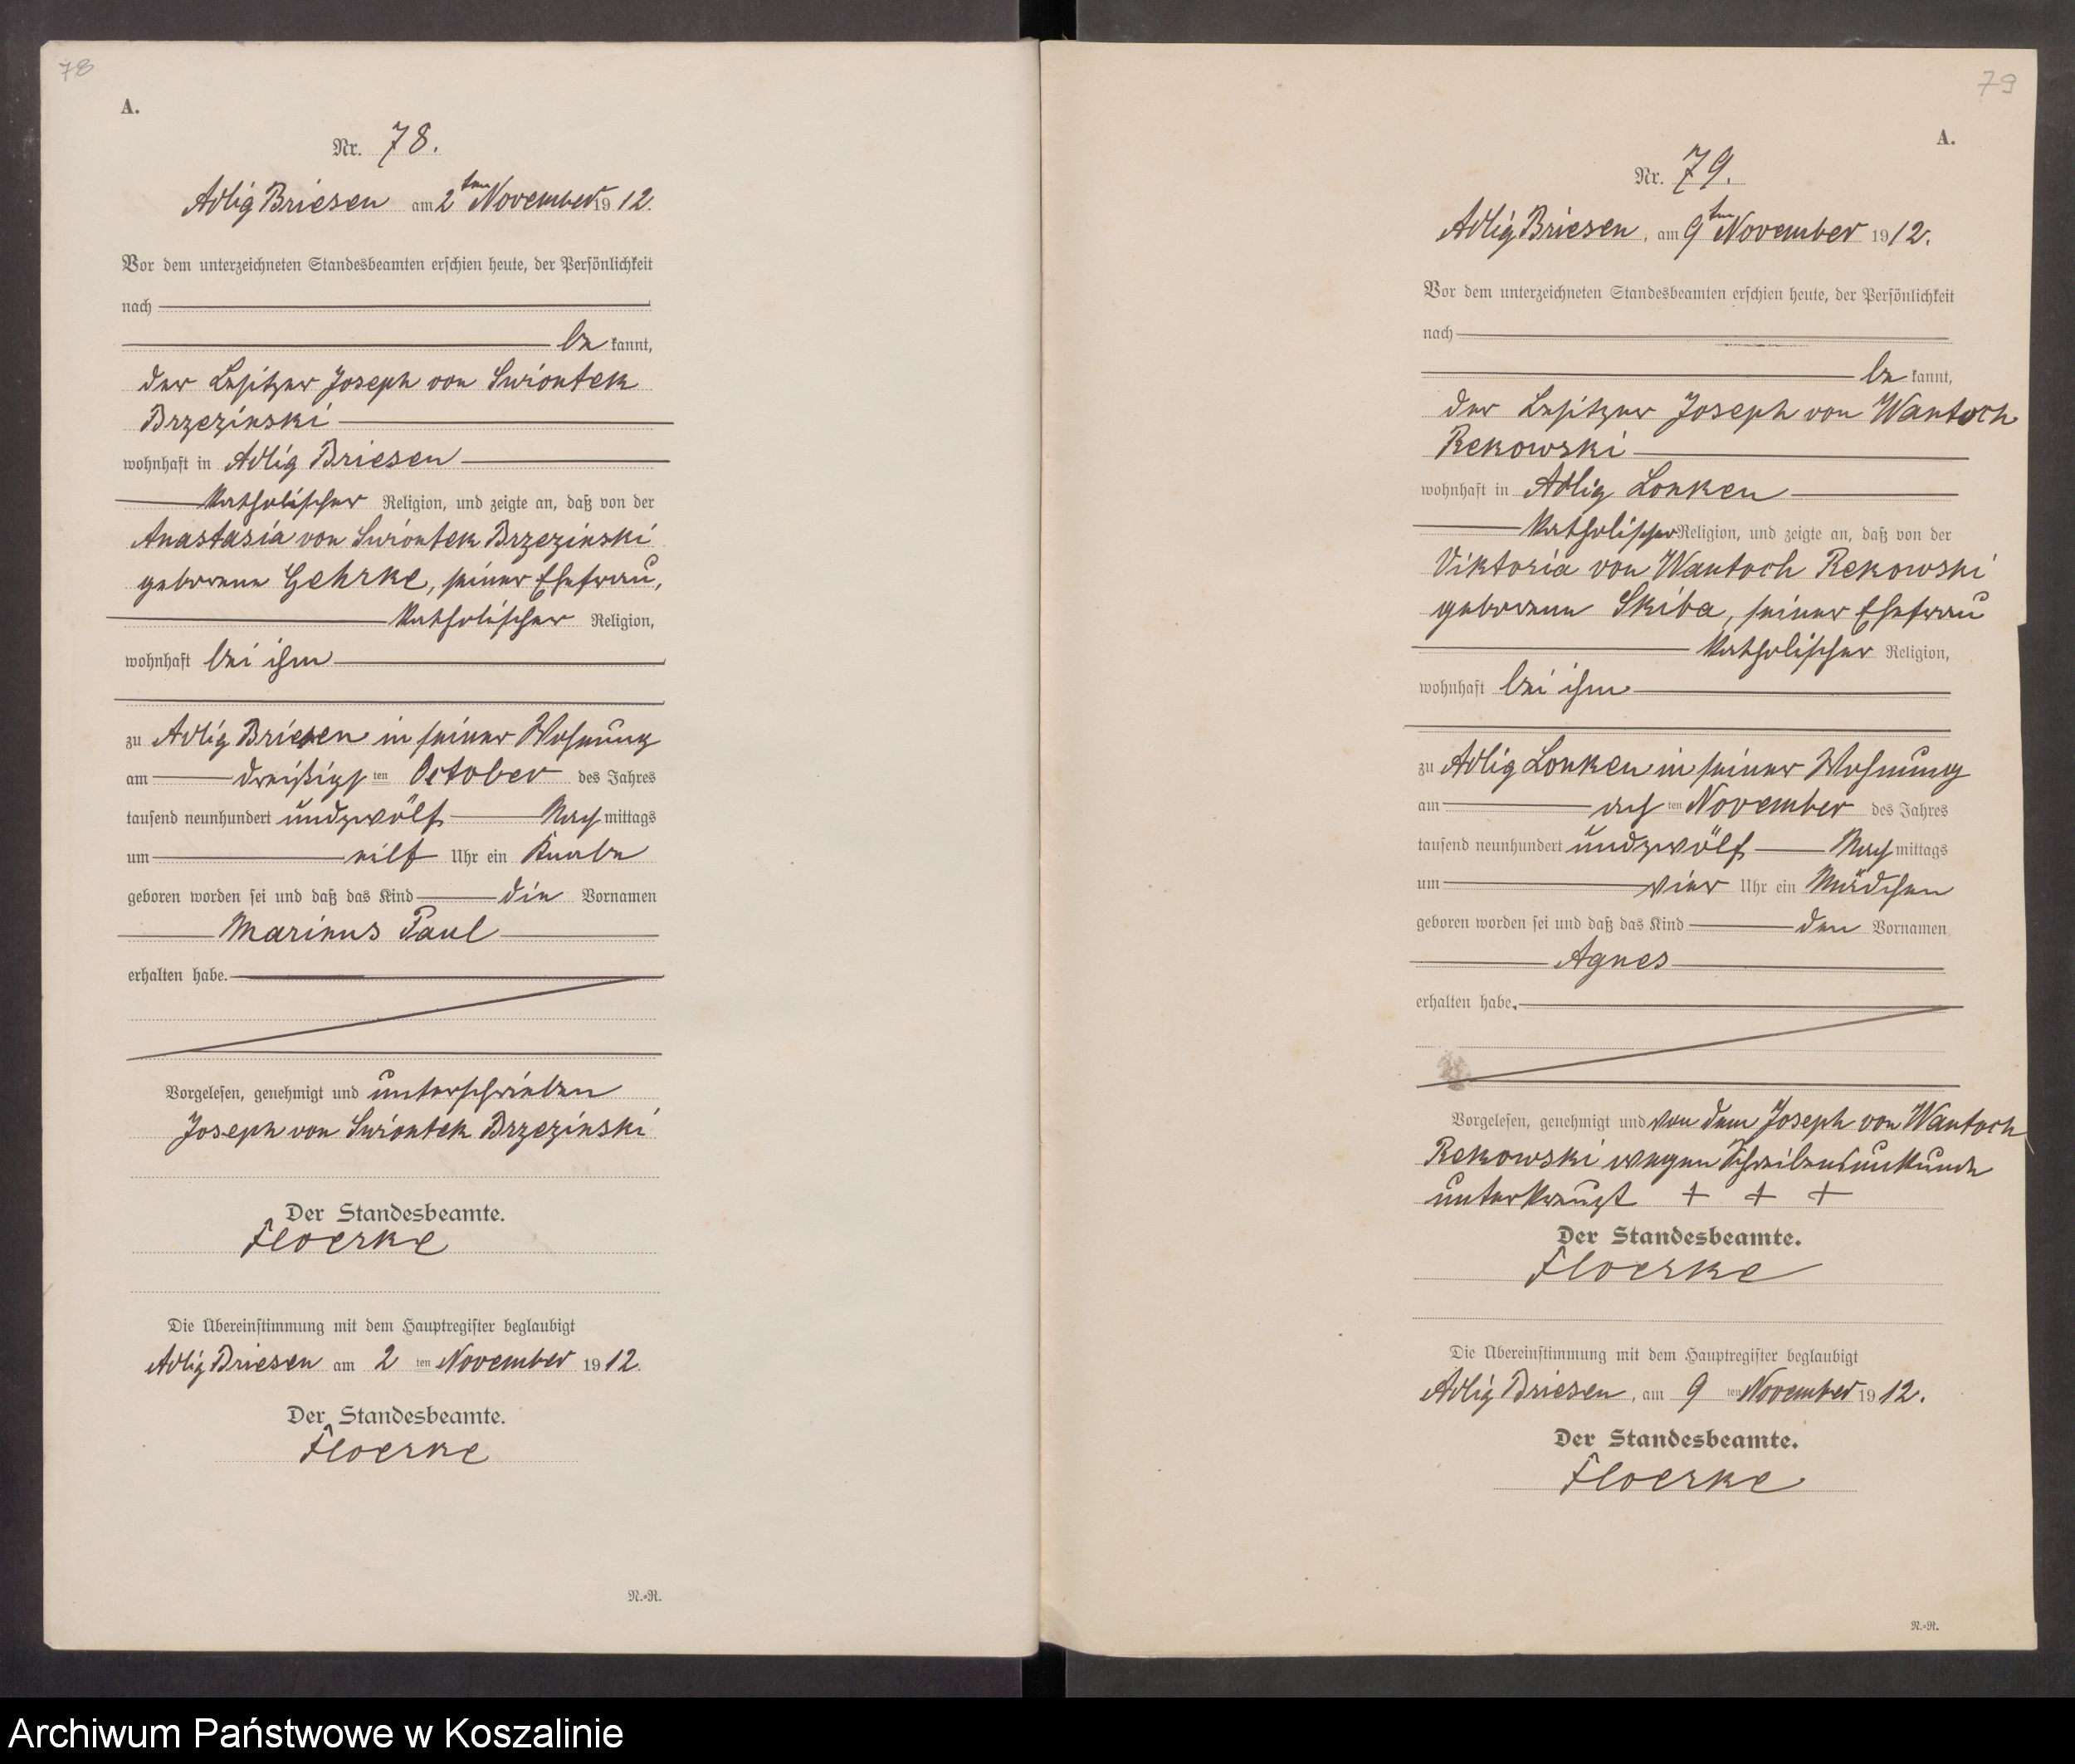 78
A.
Nr. 78.
Adlig Briesen am 2ten November 1912.
Vor dem unterzeichneten Standesbeamten erschien heute, der Persönlichkeit
nach
be kannt,
der Besitzer Joseph von Swiontek
Brzezinski
wohnhaft in Adlig Briesen
katholischer Religion, und zeigte an, daß von der
Anastasia von Swiontek Brzezinski
geborene Gehrke, seiner Ehefrau,
katholischer Religion,
wohnhaft bei ihm
zu Adlig Briesen in seiner Wohnung
am dreißigsten October des Jahres
tausend neunhundert undzwölf Nachmittags
um eilf Uhr ein Knabe
geboren worden sei und daß das Kind die Vornamen
Marinus Paul
erhalten habe.
Vorgelesen, genehmigt und unterschrieben
Joseph von Swiontek Brzezinski
Der Standesbeamte.
Floerke
Die Übereinstimmung mit dem Hauptregister beglaubigt
Adlig Briesen am 2 ten November 1912.
Der Standesbeamte.
Floerke
N.-R.
79
A.
Nr. 79.
Adlig Briesen, am 9ten November 1912.
Vor dem unterzeichneten Standesbeamten erschien heute, der Persönlichkeit
nach
be kannt,
der Besitzer Joseph von Wantoch
Rekowski
wohnhaft in Adlig Lonken
katholischer Religion, und zeigte an, daß von der
Viktoria von Wantoch Rekowski
geborene Skiba, seiner Ehefrau
katholischer Religion,
wohnhaft bei ihm
zu Adlig Lonken in seiner Wohnung
am achten November des Jahres
tausend neunhundert undzwölf Nachmittags
um vier Uhr ein Mädchen
geboren worden sei und daß das Kind den Vornamen
Agnes
erhalten habe.
Vorgelesen, genehmigt und von dem Joseph von Wantoch
Rekowski wegen Schreibensunkunde
unterkreuzt + + +
Der Standesbeamte.
Floerke
Die Übereinstimmung mit dem Hauptregister beglaubigt
Adlig Briesen, am 9 ten November 1912.
Der Standesbeamte.
Floerke
N.-R.
Archiwum Państwowe w Koszalinie